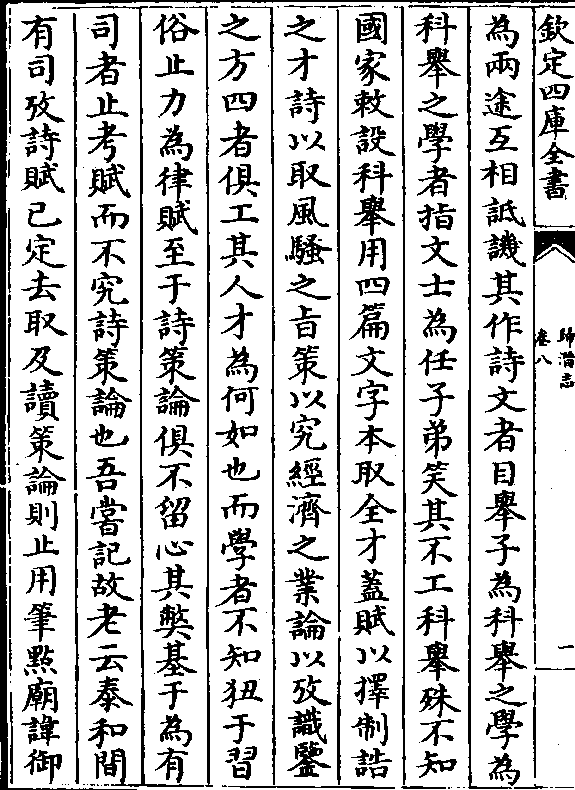 欽定四庫全書
歸潛志
卷八
一
為兩途互相詆譏其作詩文者目舉子為科舉之學為
科舉之學者指文士為任子弟笑其不工科舉殊不知
國家敕設科舉用四篇文字本取全才蓋賦以擇制誥
之才詩以取風騷之旨策以究經濟之業論以攷識鑒
之方四者俱工其人才為何如也而學者不知狃于習
俗止力為律賦至于詩策論俱不留心其弊基于為有
司者止考賦而不究詩策論也吾嘗記故老云泰和間
有司攷詩賦已定去取及讀策論則止用筆點廟諱御